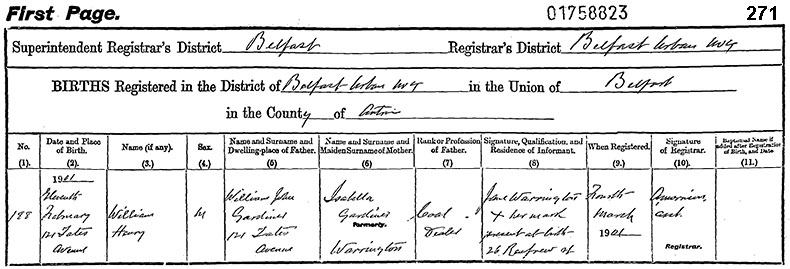 First Page. 01758823 271
Superintendent Registrar's District Belfast Registrar's District Belfast Urban No 4
BIRTHS Registered in the District of Belfast Urban No 4 in the Union of Belfast
in the County of Antrim
No. Date and Place Name (if any). Sex. Name and Surname and Name and Surname and Rank or Profession Signature, Qualification, and When Registered. Signature Baptismal Name if
of Birth. Dwelling-place of Father. Maiden Surname of Mother. of Father. Residence of Informant. of Registrar. added after Registration
of Birth, and Date
(1). (2). (3.) (4.) (5) (6) (7) (8) (9.) (10). (11.)
1901
Eleventh William John Isabella Jane Warrington Fourth
188 February William M Gardiner Gardiner Coal + her mark March
121 Tates Henry 121 Tates Formerly. Dealer present at birth 1901
Avenue Avenue Warrington 26 Renfrew St Registrar.